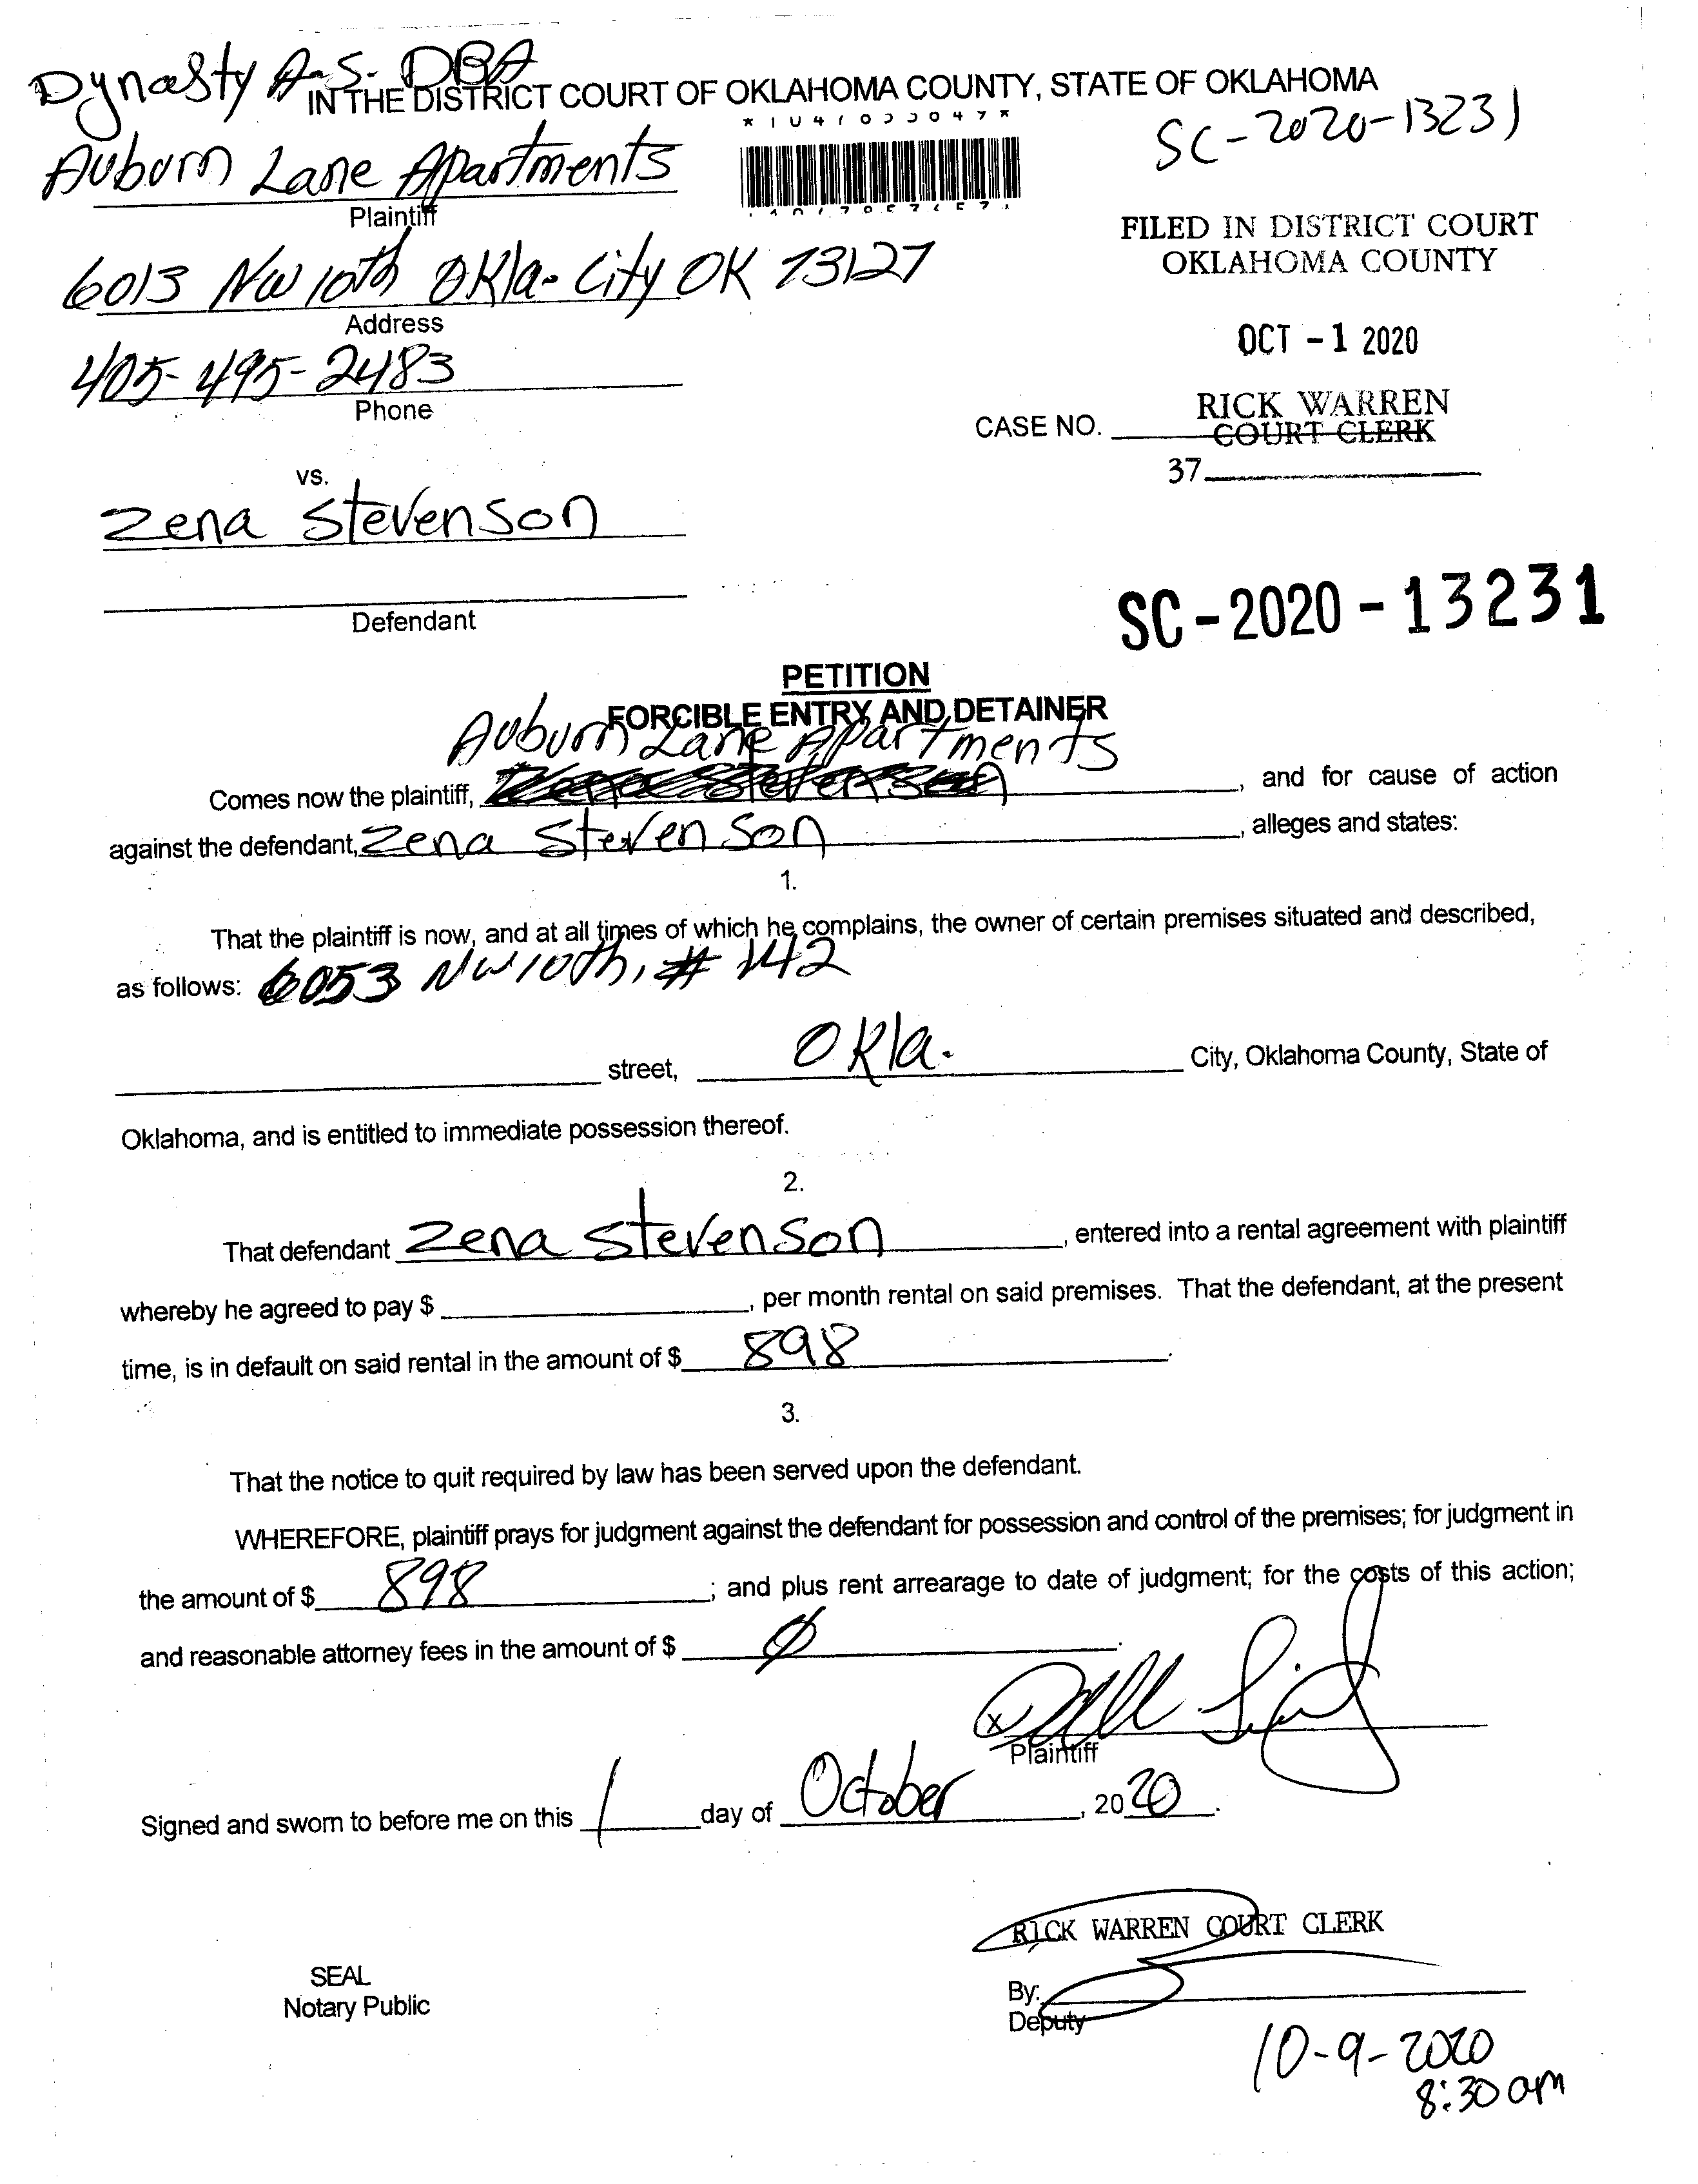 Dynasty A.S. DBA
IN THE DISTRICT COURT OF OKLAHOMA COUNTY, STATE OF OKLAHOMA
SC-2020-13231
Auburn Lane Apartments
Plaintiff
FILED IN DISTRICT COURT
OKLAHOMA COUNTY
6013 NW 10th Okla. City OK 73127
Address
OCT -1 2020
405-495-2483
Phone
RICK WARREN
COURT CLERK
CASE NO.
37
vs.
Zena Stevenson
Defendant
SC-2020-13231
PETITION
FORCIBLE ENTRY AND DETAINER
Auburn Lane Apartments
Comes now the plaintiff, , and for cause of action
against the defendant, Zena Stevenson, alleges and states:
1.
That the plaintiff is now, and at all times of which he complains, the owner of certain premises situated and described,
as follows: 6053 NW 10th, # 142
street, Okla. City, Oklahoma County, State of
Oklahoma, and is entitled to immediate possession thereof.
2.
That defendant Zena Stevenson, entered into a rental agreement with plaintiff
whereby he agreed to pay $ , per month rental on said premises. That the defendant, at the present
time, is in default on said rental in the amount of $ 898.
3.
That the notice to quit required by law has been served upon the defendant.
WHEREFORE, plaintiff prays for judgment against the defendant for possession and control of the premises; for judgment in
the amount of $ 898; and plus rent arrearage to date of judgment; for the costs of this action;
and reasonable attorney fees in the amount of $ Ø.
x
Plaintiff
Signed and sworn to before me on this 1 day of October, 2020.
RICK WARREN COURT CLERK
SEAL
Notary Public
By:
Deputy
10-9-2020
8:30 am